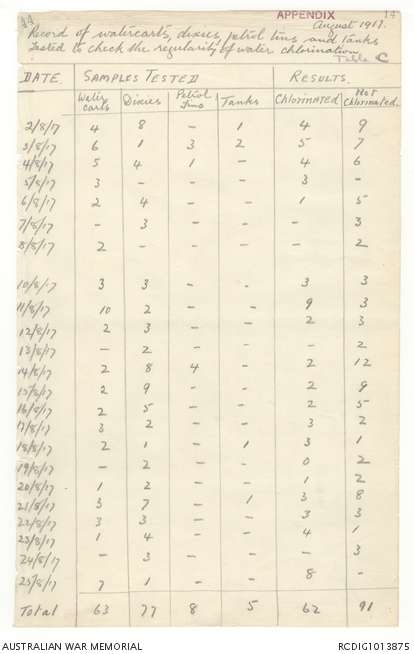 44
APPENDIX
14
August 1917.
Record of watercarts, dixies, petrol tins, and Tanks
Tested to check the regularity of water chlorination.
Table C
DATE. SAMPLES TESTED RESULTS.
Water carts Dixies Petrol Tins Tanks Chlorinated Not Chlorinated.
2/8/17 4 8 - 1 4 9
3/8/17 6 1 3 2 5 7
4/8/17 5 4 1 - 4 6
5/8/17 3 - - - 3 -
6/8/17 2 4 - - 1 5
7/8/17 - 3 - - - 3
8/8/17 2 - - - - 2
10/8/17 3 3 - - 3 3
11/8/17 10 2 - 9 3
12/8/17 2 3 - - 2 3
13/8/17 - 2 - - - 2
14/8/17 2 8 4 - 2 12
15/8/17 2 9 - - 2 9
16/8/17 2 5 - - 2 5
17/8/17 3 2 - - 3 2
18/8/17 2 1 - 1 3 1
19/8/17 - 2 - - 0 2
20/8/17 1 2 - - 1 2
21/8/17 3 7 - 1 3 8
22/8/17 3 3 - - 3 3
23/8/17 1 4 - - 4 1
24/8/17 - 3 - - - 3
25/8/17 7 1 - - 8 -
Total 63 77 8 5 62 91
AUSTRALIAN WAR MEMORIAL
RCDIG1013875